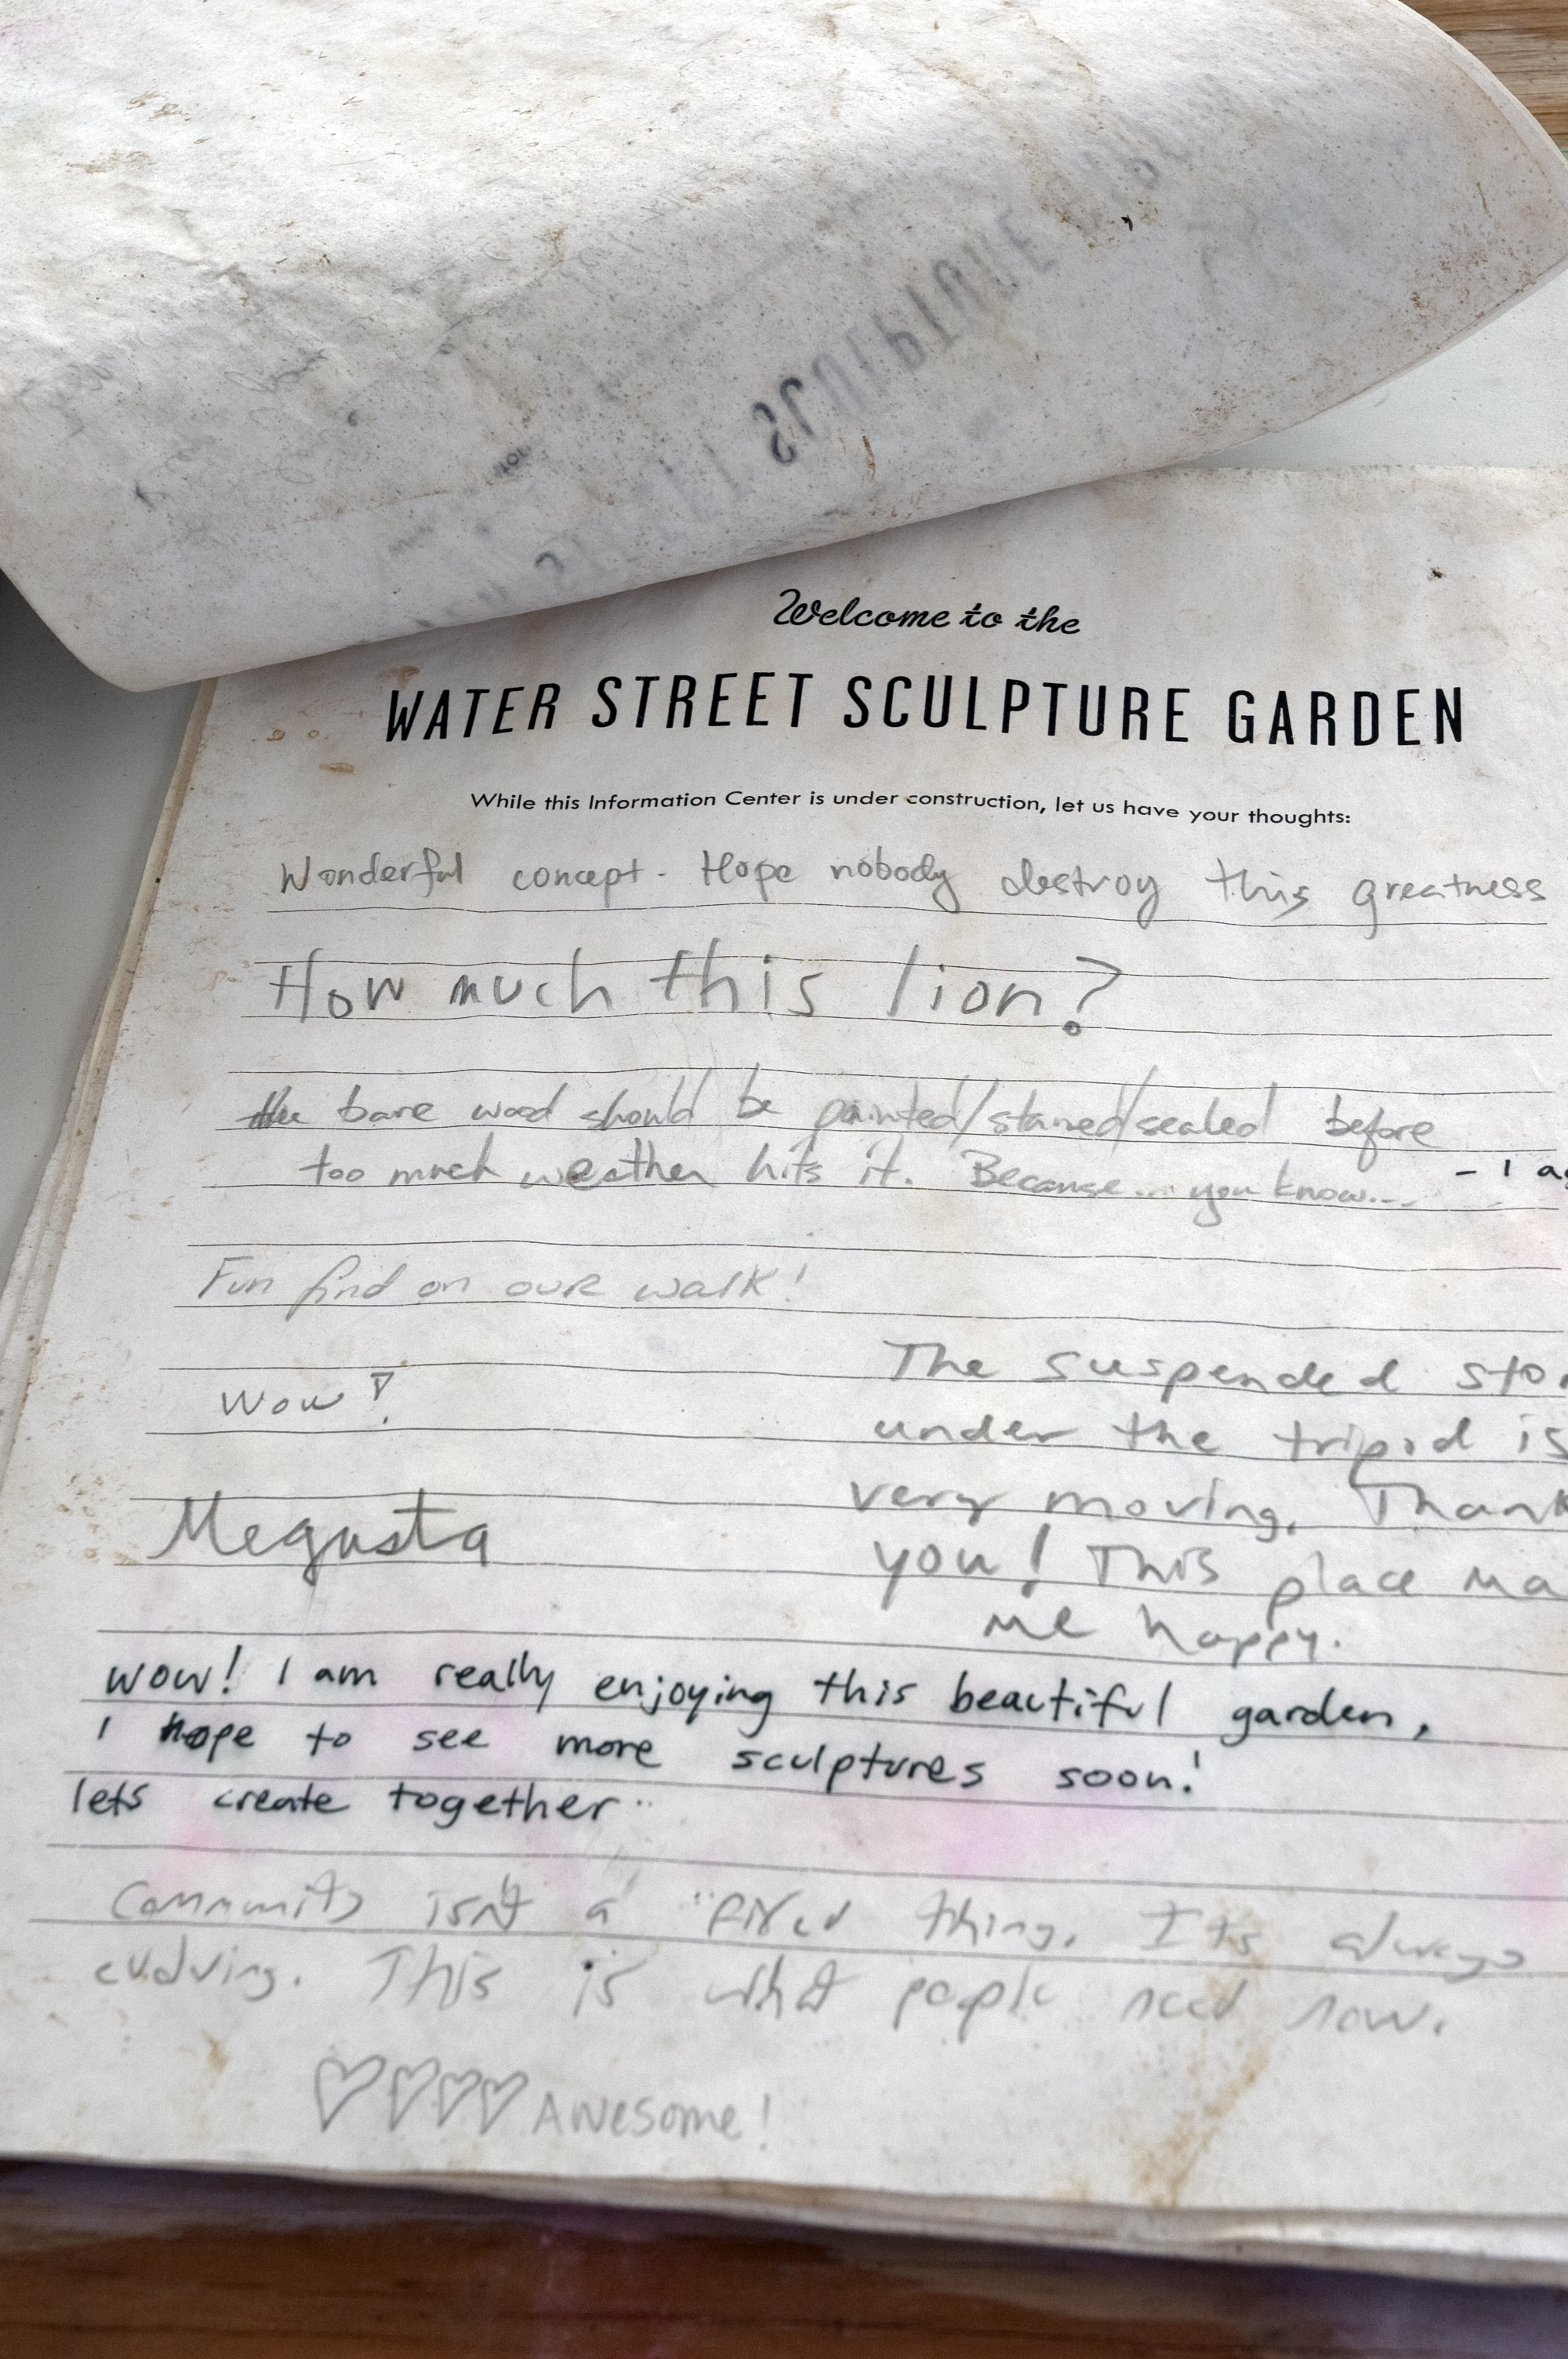 Welcome to the
WATER STREET SCULPTURE GARDEN
While this Information Center is under construction, let us have your thoughts:
Wonderful concept. Hope nobody destroy this greatness
How much this lion?
the bare wood should be painted/stained/sealed before
too much weather hits it. Because... you know...
- I
Fun find on our walk!
Wow!
The suspended
under the tripod is
very moving. Thank
you! This place
me happy.
Megusta
wow! I am really enjoying this beautiful garden,
I hope to see more sculptures soon!
lets create together..
Community isn't a "fixed thing. Its always
evolving. This is what people need now.
Awesome!